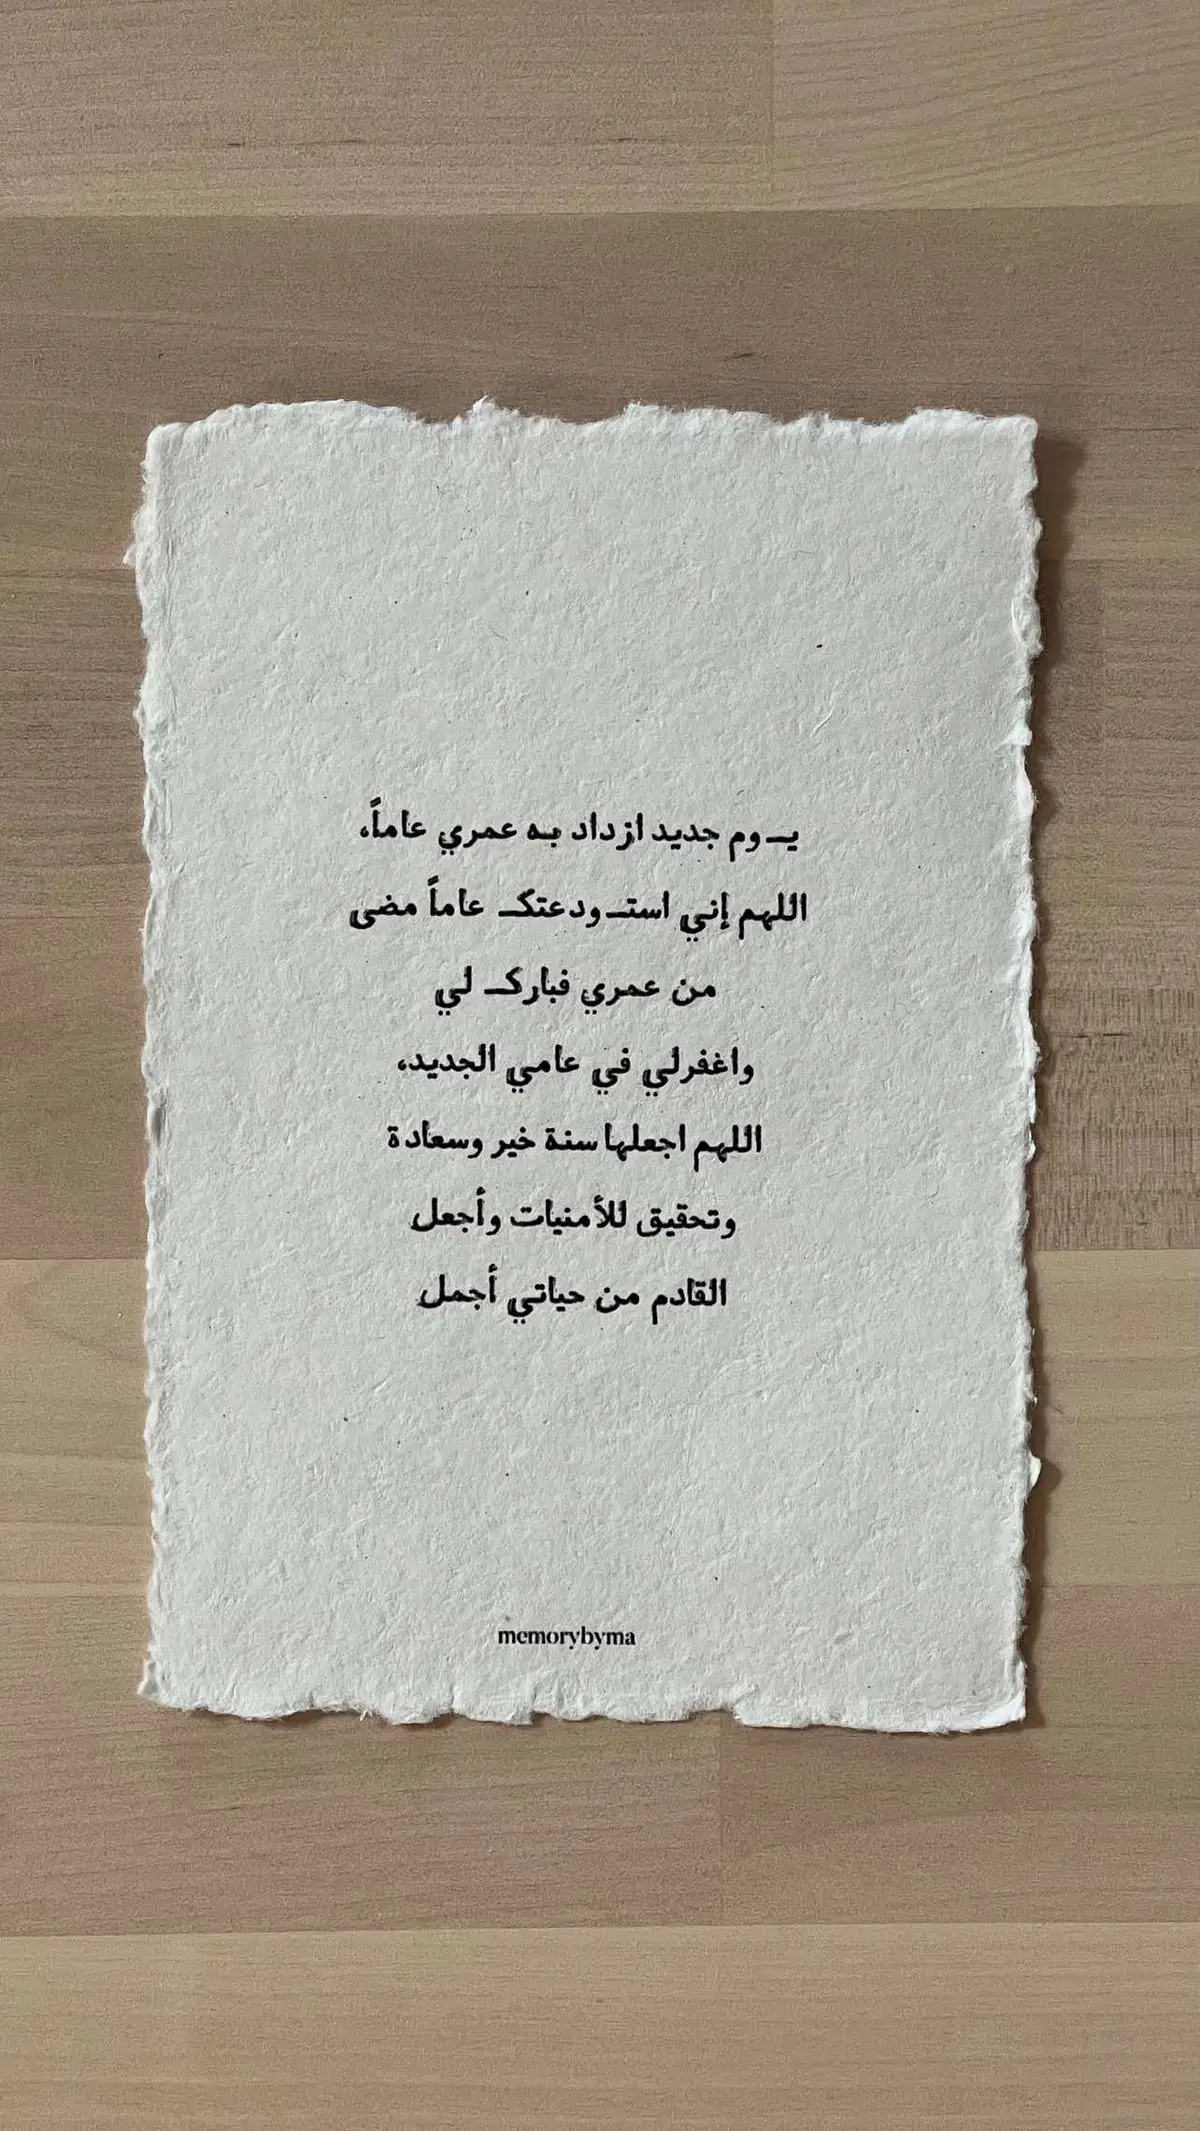 يــوم جديد ازداد بـه عمري عاماً،
اللهم إني استــودعتكـ عاماً مضى
من عمري فباركـ لي
واغفرلي في عامي الجديد،
اللهم اجعلها سنة خير وسعادة
وتحقيق للأمنيات وأجعل
القادم من حياتي أجمل
memorybyma